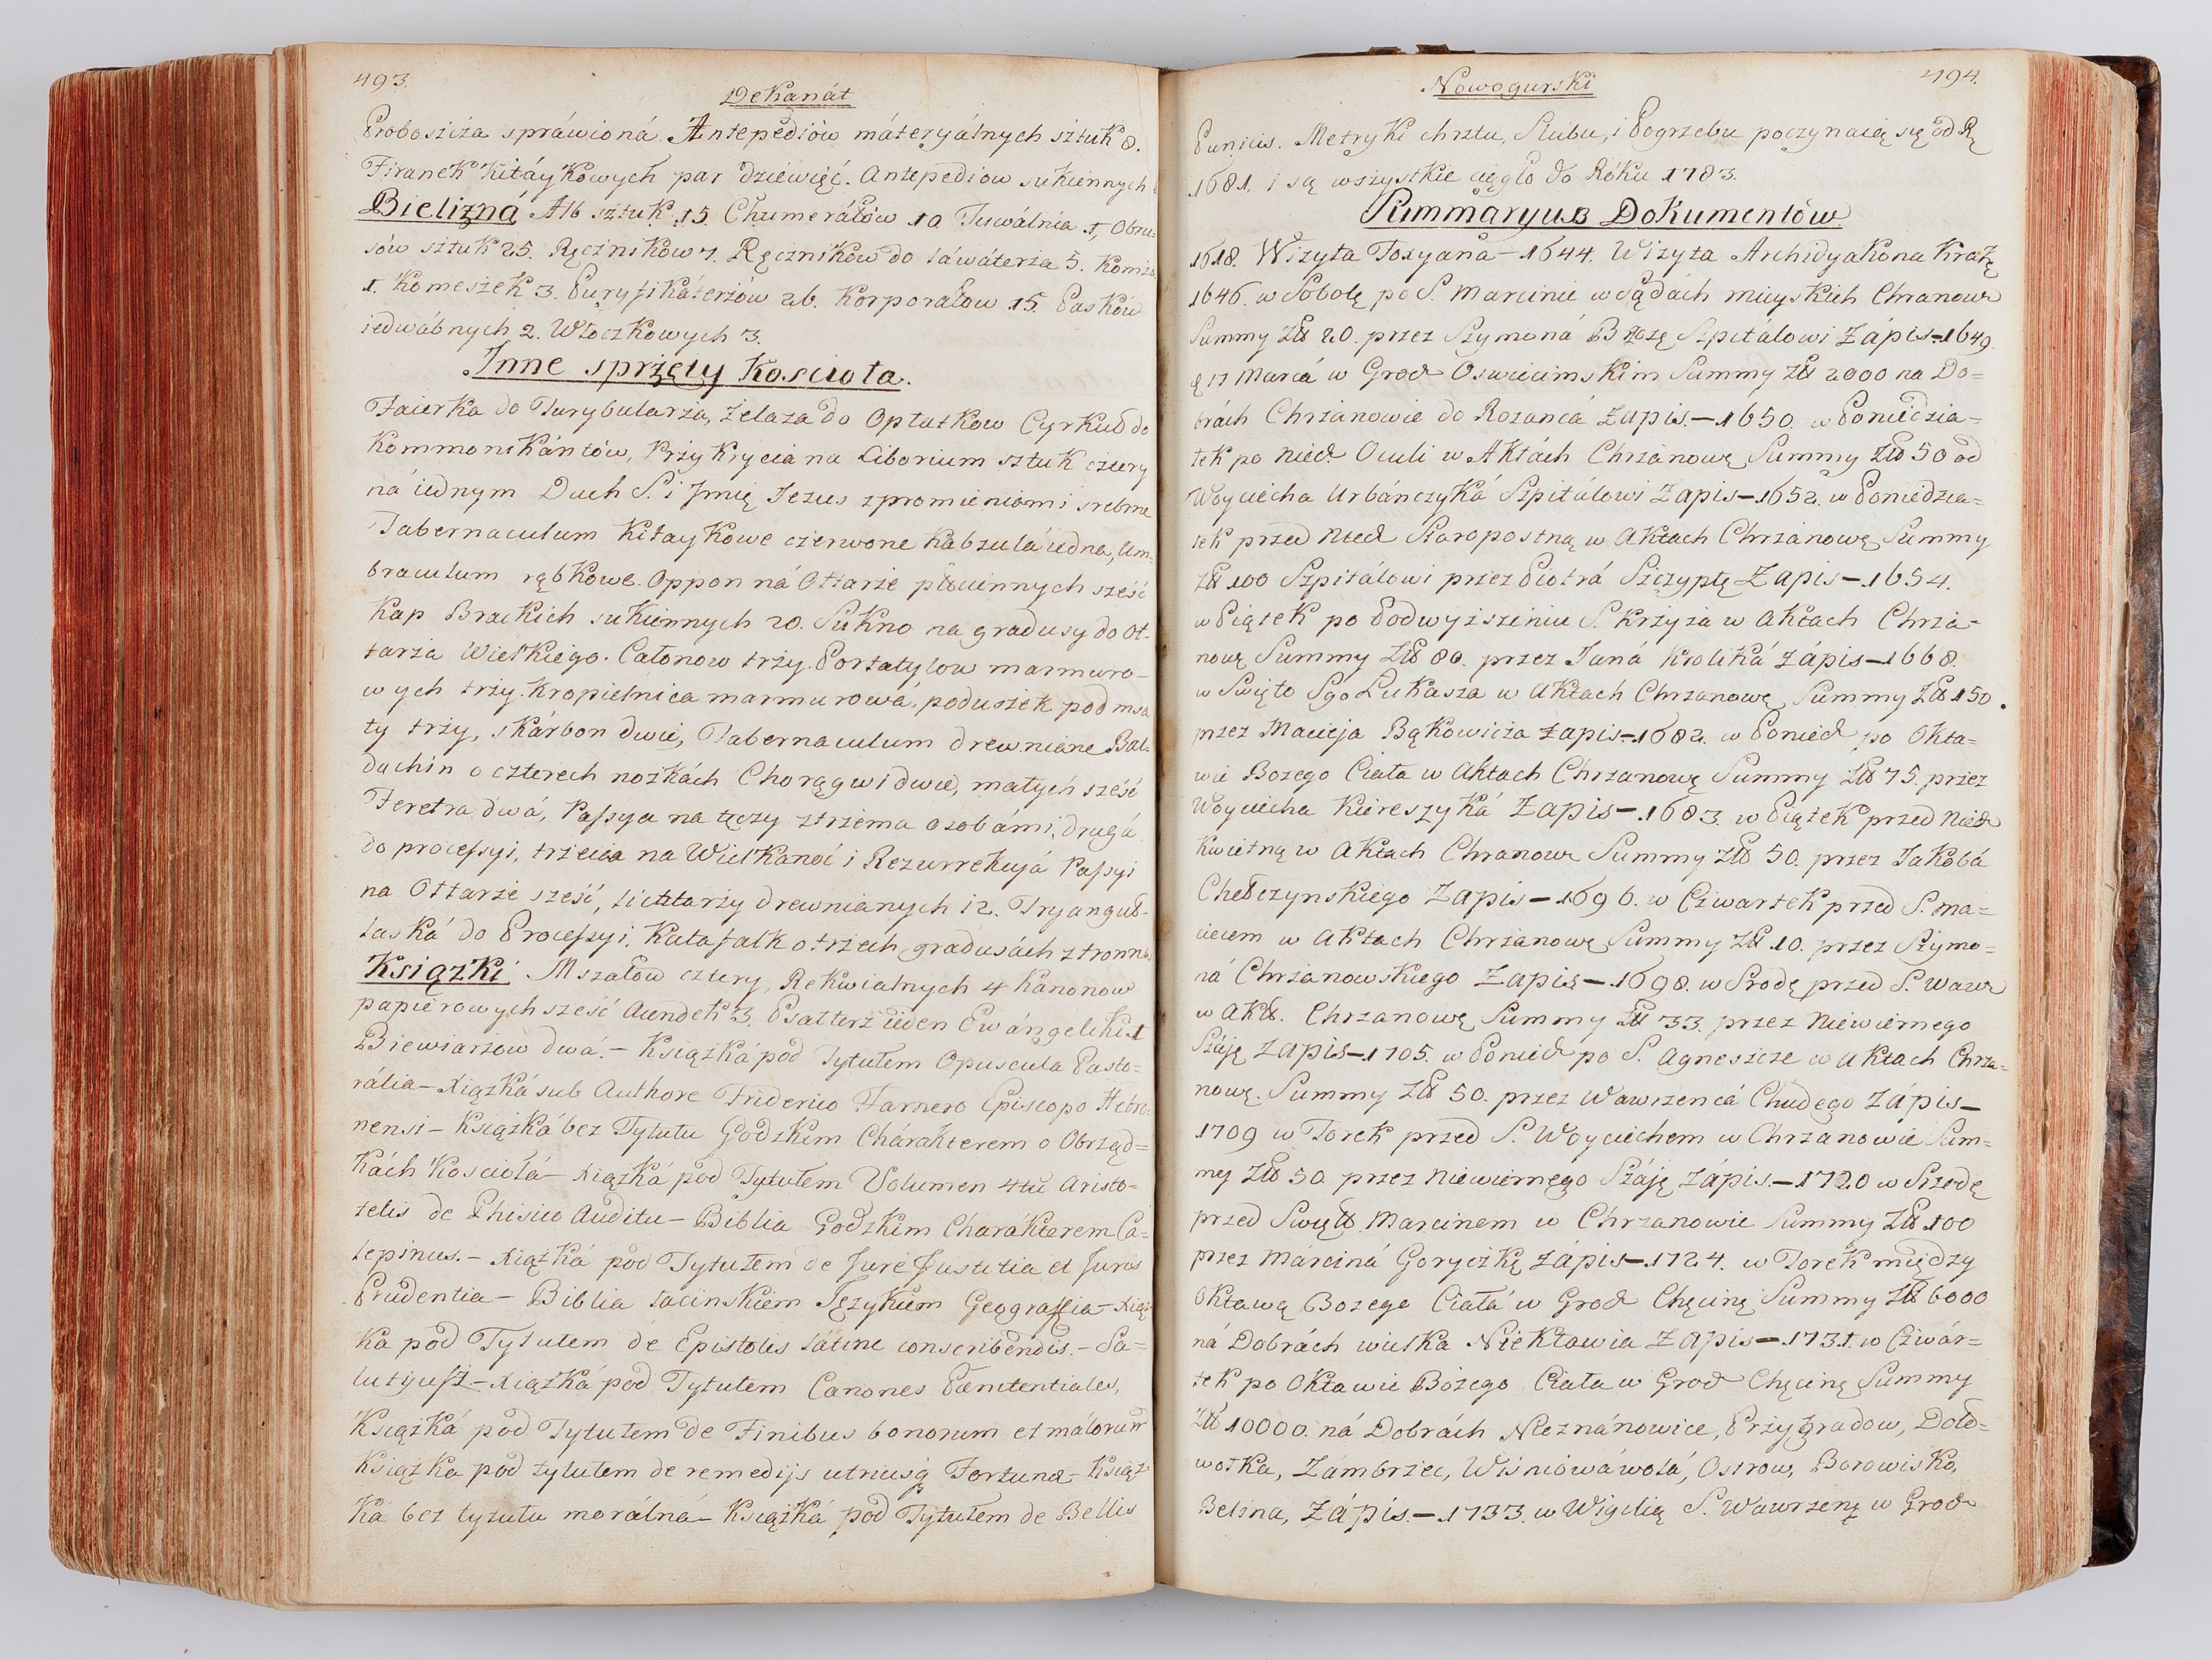 493.
Dekanát
Proboszcza spráwioná. Antepediow máteryálnych sztuk 8.
Firanek kitáykowych par dziewięć. Antepediow sukiennych
Bielizná Alb sztuk 15. Chumerałów 10 Tuwálnia 1, Obru=
sów sztuk 25. Ręczników 7. Ręczników do láwáterza 5. Komża
1. Komeszek 3. Puryfikáterzów 26. Korporałow 15. Pasków
iedwábnych 2. Włoczkowych 3.
Inne sprzęty Koscioła.
Faierka do Turybularza, Żelaza do Opłatkow Cyrkuł do
Kommonikántów, Przykrycia na Ciborium sztuk cztery
ná iednym Duch S. i Jmię Jezus z promieniámi srebrne
Tabernaculum kitaykowe czerwone Kabzulá iedna, Um-
braculum rąbkowe. Oppon ná Ołtarze płuciennych sześć
Kap Brackich sukiennych 20. Sukno na gradusy do Oł-
tarza Wielkiego. Całonow trzy. Portatylow marmuro-
wych trzy. Kropielnica marmurowá, poduszek pod msza
ły trzy, skárbon dwie, Tabernaculum drewniane Bal-
dachin o czterech nożkách Chorągwi dwie, małych sześć
Feretra dwá, Passya na tęczy z trzema osobámi, drugá
do processyi, trzecia na Wielkanoc i Rezurrekcyá Passyi
na Ołtarze sześć, lichtarzy drewnianych 12. Tryanguł-
laská do Processyi, Katafalk o trzech gradusách z tronną
Książki Mszałow cztery, Rekwialnych 4 Kanonow
papierowych sześć Aendek 3. Psałterz ieden Ewángeliki 1
Biewiarzow dwá. - Książká pod Tytułem Opuscula Pasto=
rália - Xiązká sub Authore Friderico Farnero Episcopo Hebro-
nensi - Książká bez Tytułu Godzkim Chárakterem o Obrząd=
kách Kosciołá - Xiązká pod Tytułem Volumen 4tu Aristo=
telis de Phisico Auditu - Biblia Godzkim Charákterem Ca=
lepinus. - Xiązká pod Tytułem de Jure Justitia et Juris
Prudentia - Biblia łacinskiem Językiem Geograffia - Xiąz
ka pod Tytułem de Epistolis látine conscribendis. - Sa=
lutyusz - Xiązká pod Tytułem Canones Pænitentiales,
Książká pod Tytułem de Finibus bonorum et málorum
Książka pod tytułem de remedijs utriusq Fortunæ - Książ-
ká bez tytułu morálná - Książká pod Tytułem de Bellis
Nowogurski
494.
Punicis. Metryki chrztu, Slubu, i Pogrzebu poczynaią się od R
1681. i są wszystkie ciągło do Róku 1783.
Summaryusz Dokumentów.
1618. Wizyta Toxyana - 1644. Wizyta Archidyakona Krak
1646. w Sobotę po S. Marcinie w Sądách mieyskich Chranow
Summy Zł 20. przez Szymoná Brzozę Szpitálowi Zápis - 1649.
d 17 Marcá w Grod Oswiecimskim Summy Zł 2000 na Do=
brách Chrzanowie do Rozancá Zapis. - 1650. w Poniedzia=
łek po Nied. Oculi w Aktách Chrzanow Summy Zł 50 od
Woyciecha Urbánczyká Szpitálowi Zapis - 1652. w Poniedzia=
łek przed Nied Staropostną w Aktach Chrzanow Summy
Zł 100 Szpitálowi przez Piotrá Szczyptę Zapis - 1654.
w Piątek po Podwyższeniu S. Krzyża w Aktach Chrza-
now Summy Zł 80. przez Janá Kroliká Zápis - 1668.
w Swięto Sgo Łukasza w Aktach Chrzanow Summy Zł 150.
przez Macieja Bąkowicza Zapis - 1682. w Ponied po Okta=
wie Bozego Ciała w Aktach Chrzanow Summy Zł 75. przez
Woyciecha Kiereszyká Zapis - 1683. w Piątek przed Nied
Kwietną w Aktach Chranow Summy Zł 50. przez Jakobá
Chełczynskiego Zapis - 1696. w Czwartek przed S. Ma=
cieiem w Aktach Chrzanow Summy Zł 10. przez Szymo=
ná Chrzanowskiego Zapis - 1698. w Srodę przed S. Waw
w Akt. Chrzanow Summy Zł 33. przez Niewiernego
Száję Zapis - 1705. w Ponied po S. Agneszce w Aktach Chrza=
now. Summy Zł 50. przez Wawrzencá Chudego Zápis -
1709 w Torek przed S. Woyciechem w Chrzanowie Sum=
my Zł 50. przez Niewiernego Száję Zápis. - 1720 w Srzodę
przed Swięt Marcinem w Chrzanowie Summy Zł 100
przez Márciná Goryczkę Zápis - 1724. w Torek między
Oktawą Bozego Ciałá w Grod Chęcin Summy Zł 6000
ná Dobrách wielka Niekławia Zapis - 1731. w Czwár=
tek po Oktawie Bożego Ciała w Grod Chęcin Summy
Zł 10000. ná Dobrách Nieznánowice, Przygradow, Doło=
wotka, Zambrzec, Wiśniówáwolá, Ostrow, Borowisko,
Belina, Zápis. - 1733. w Wigilią S. Wawrzen w Grod